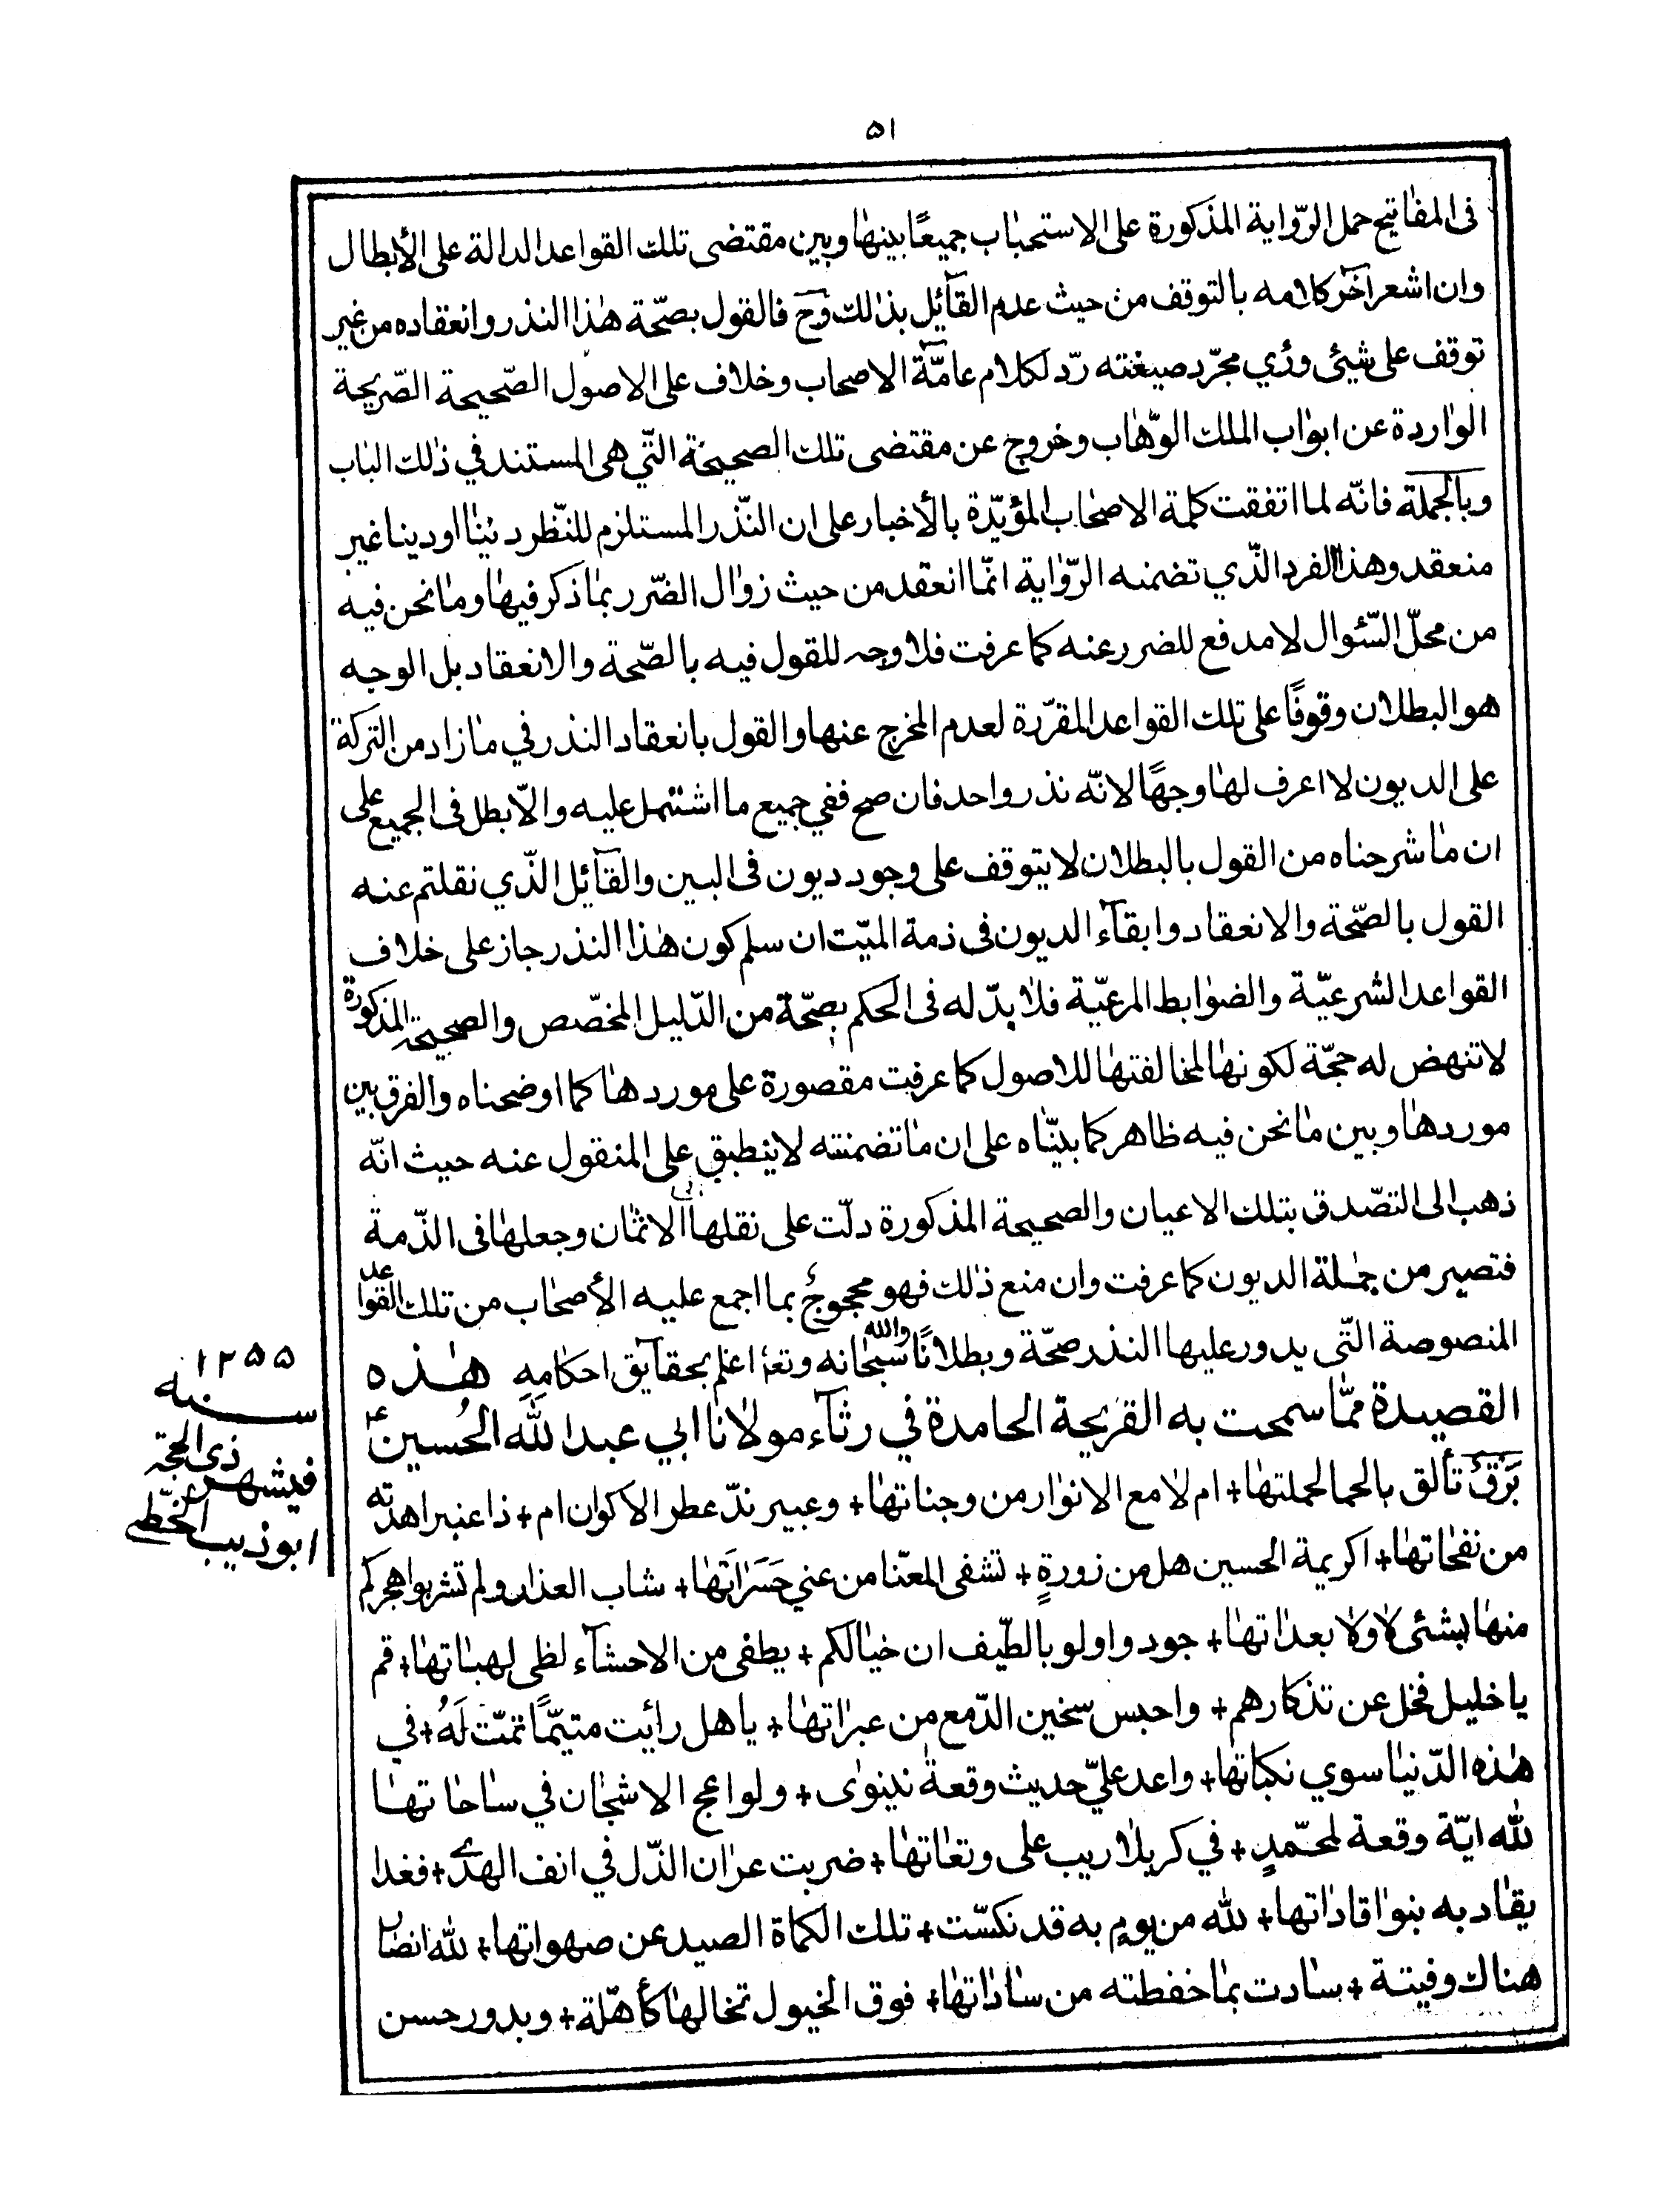 ٥١
فى المفاتيح حمل الرّواية المذكورة على الاستحباب جميعًا بينها وبين مقتضى تلك القواعد الدالة على الأبطال
وان اشعر آخر كلامه بالتوقف من حيث عدم القآئل بذلك وح فالقول بصحّة هذا النذر وانعقاده من غير
توقف على شيئى ورُي مجرّد صيغته ردّ لكلام عامّة الاصحاب وخلاف على الاصول الصّحيحة الصّريحة
الواردة عن ابواب الملك الوّهاب وخروج عن مقتضى تلك الصحيحة التّي هى المستند في ذلك الباب
وبالجملة فانّه لما اتفقت كلمة الاصحاب المؤيّدة بالأخبار على ان النّذر المستلزم للنّظرر دنيا او دينا غير
منعقد وهذا الفرد الذّي تضمنه الرّواية انّما انعقد من حيث زوال الضّرر بما ذكر فيها وما نحن فيه
من محلّ السّئوال لا مدفع للضرر عنه كما عرفت فلا وجه للقول فيه بالصّحة والانعقاد بل الوجه
هو البطلان وقوفًا على تلك القواعد المقرّرة لعدم المخرج عنها والقول بانعقاد النذر في ما زاد من التركة
على الديون لا اعرف لها وجهًا لانّه نذر واحد فان صح ففي جميع ما اشتمل عليه والاّ بطل فى الجميع على
ان ما شرحناه من القول بالبطلان لا يتوقف على وجود ديون فى البين والقآئل الذّي نقلتم عنه
القول بالصّحة والانعقاد وابقآء الديون فى ذمة الميّت ان سلم كون هذا النذر جاز على خلاف
القواعد الشرعيّة والضوابط المرعيّة فلا بدّ له فى الحكم بصحّة من الدّليل المخصّص والصحيحة المذكورة
لا تنهض له حجّة لكونها لمخالفتها للاصول كما عرفت مقصورة على موردها كما اوضحناه والفرق بين
موردها وبين ما نحن فيه ظاهر كما بينّاه على ان ما تضمنته لا ينطبق على المنقول عنه حيث انّه
ذهب الى التصّدق بتلك الاعيان والصحيحة المذكورة دلّت على نقلها الى الاثمان وجعلها فى الذّمة
فتصير من جملة الديون كما عرفت وان منع ذلك فهو محجوجٌ بما اجمع عليه الأصحاب من تلك القواعد
المنصوصة التّى يدور عليها النذر صحّة وبطلانًا والله سبحانه وتعا اعلم بحقآيق احكامه هذه
القصيدة ممّا سمحت به القريحة الحامدة في رثآء مولانا ابي عبد الله الحُسين ع
بَرَقٌ تألق بالحما لحملتها + ام لامع الانوار من وجناتها + وعبير ندّ عطر الاكوان ام + ذا عنبر اهدته
من نفحاتها + اكريمة الحسين هل من زورةٍ + تشفى المعّنا من عني حَسَرَاتَها + شاب العذار ولم تشربوا هجركم
منها بشئى لا ولا بعداتها + جودوا ولو بالطّيف ان خيالكم + يطفى من الاحشآء لظى لهباتها + قم
يا خليل فخل عن تذكارهم + واحبس سخين الدّمع من عبراتها + يا هل رائت متيمًّا تمتّ لَهُ + في
هذه الدّنيا سوي نكباتها + واعد عليّ حديث وقعة نينوى + ولواعج الاشجان في ساحاتها
لله ايّة وقعة لمحمّدٍ + في كربلا اربت على وتعاتها + ضربت عران الذّل في انف الهدى + فغدا
يقاد به بنوا قاداتها + لله من يومٍ به قد نكسّت + تلك الكماة الصيد عن صهواتها + لله انصار
هناك وفيتة + سادت بما حفظته من ساداتها + فوق الخيول تخالها كأهّلة + وبدور حسن
١٢٥٥
سنه
فيشهر ذي الحجة
ابو ذيب الخطّي